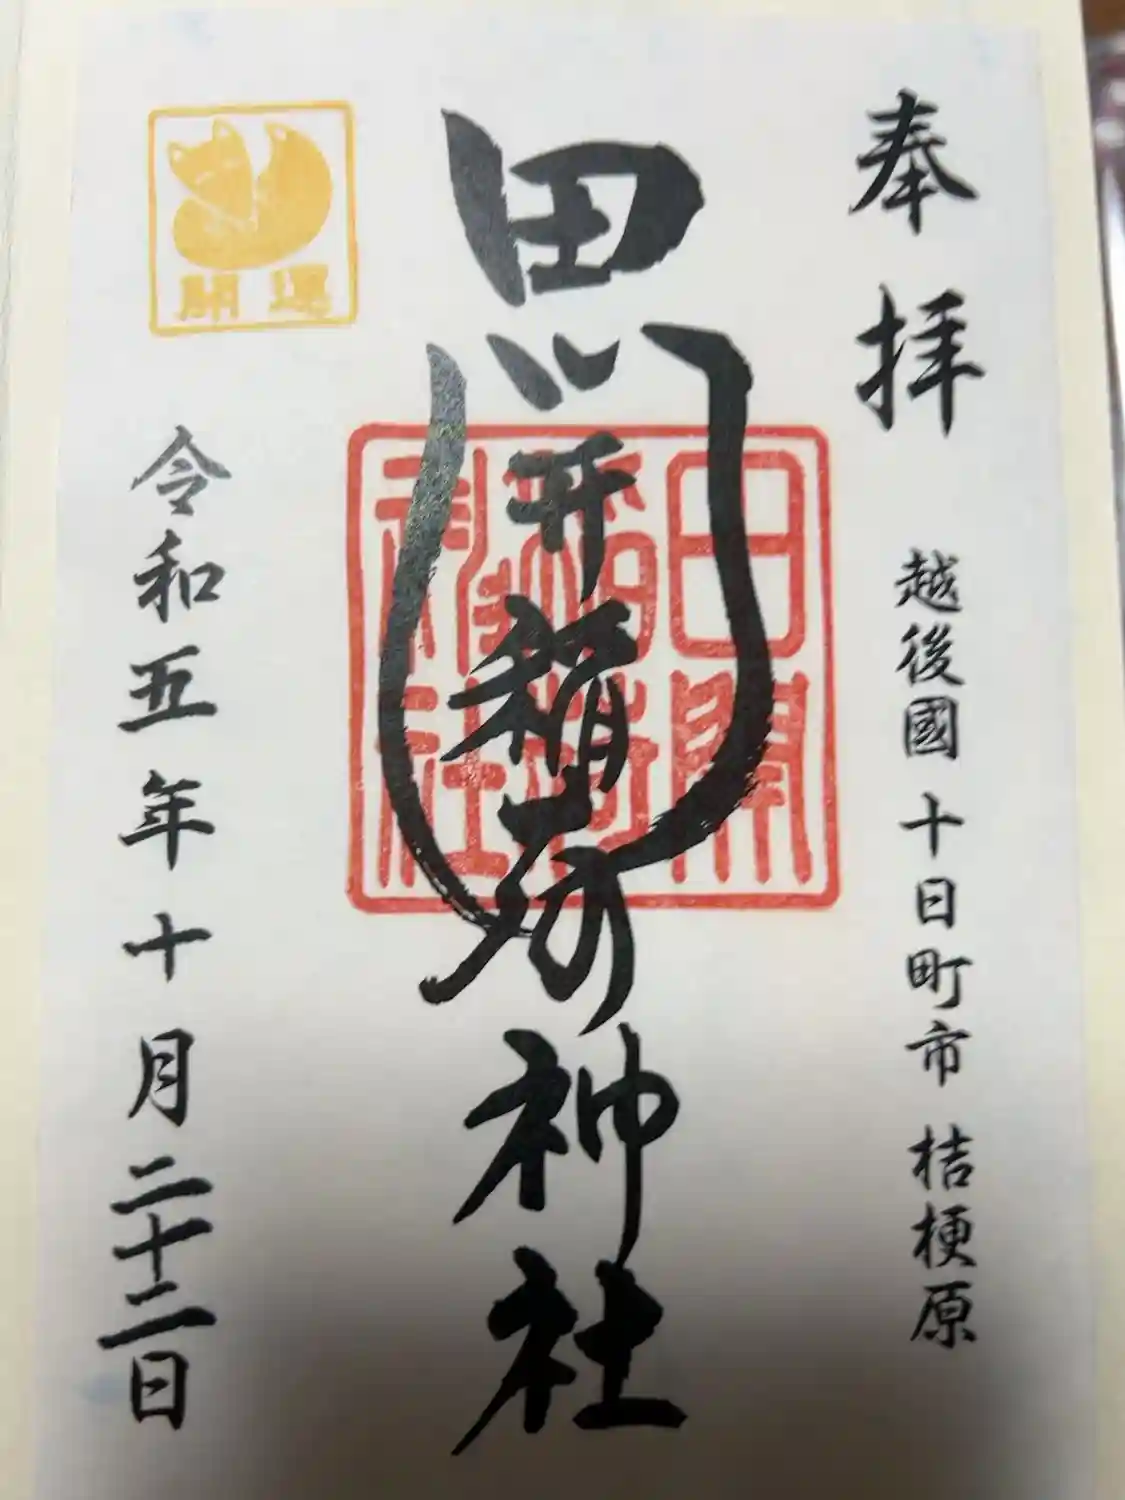 奉拝
越後國 十日町市 桔梗原
田開稲荷神社
田開
稲荷
神社
開運
令和五年十月二十二日